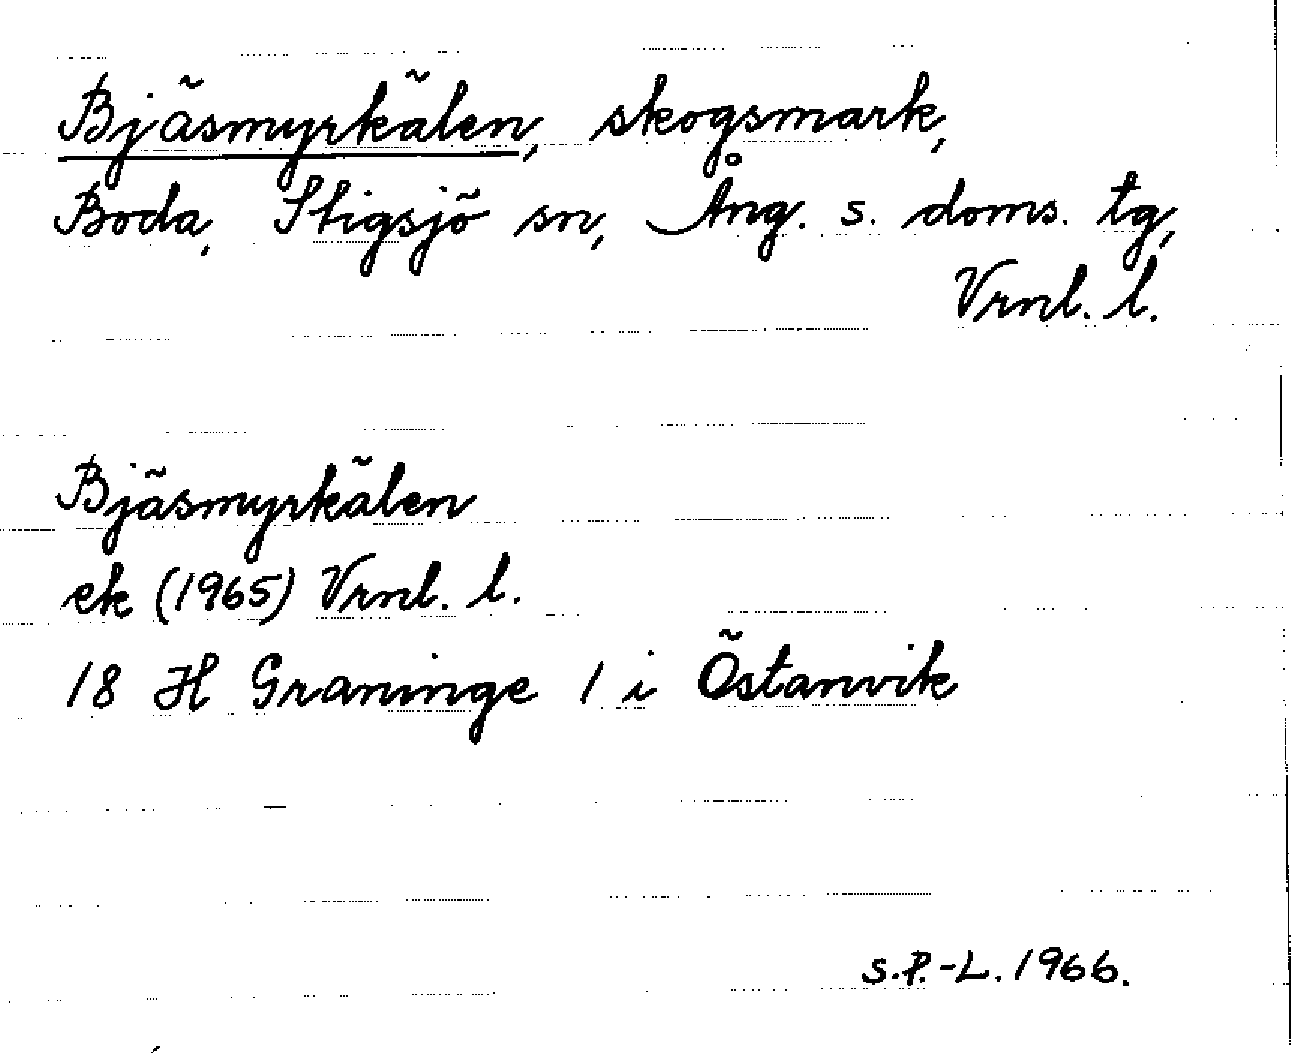 Bjäsmyrkälen, skogsmark,
Boda, Stigsjö sn, Ång. s. doms. tg,
Vrnl. l.
Bjäsmyrkälen
ek (1965) Vrnl. l.
18 H Graninge 1 i Östanvik
S.P.-L. 1966.